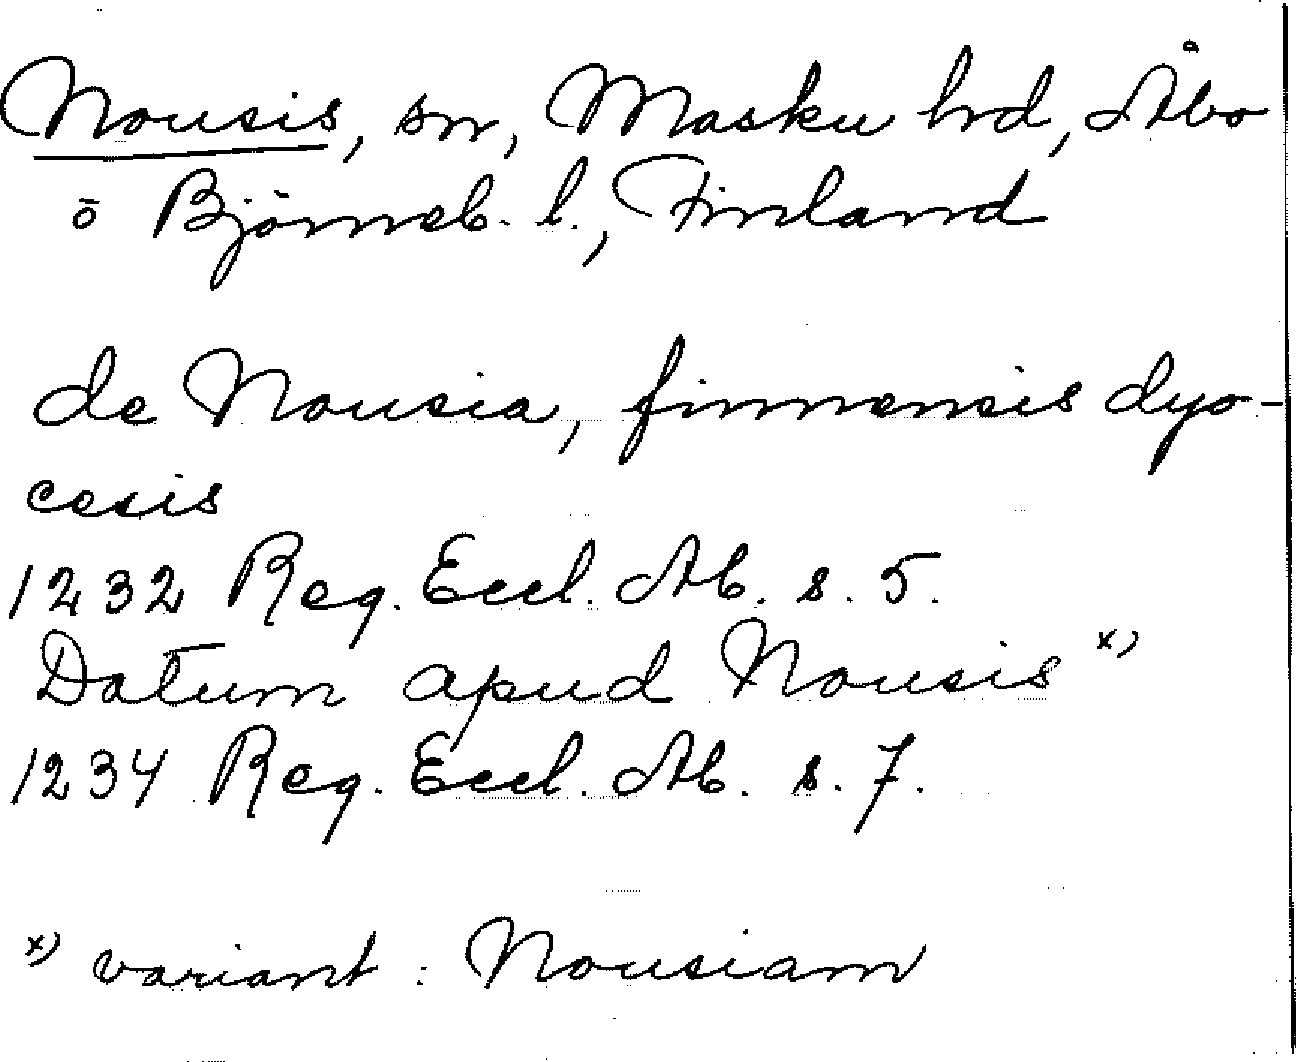 Nousis, sn, Masku hrd, Åbo
o Björneb. l., Finland
de Nousia, finnensis dyo-
cesis
1232 Reg. Eccl. Ab. s. 5.
Datum apud Nousis x)
1234 Reg. Eccl. Ab. s. 7.
x) variant: Nousiam